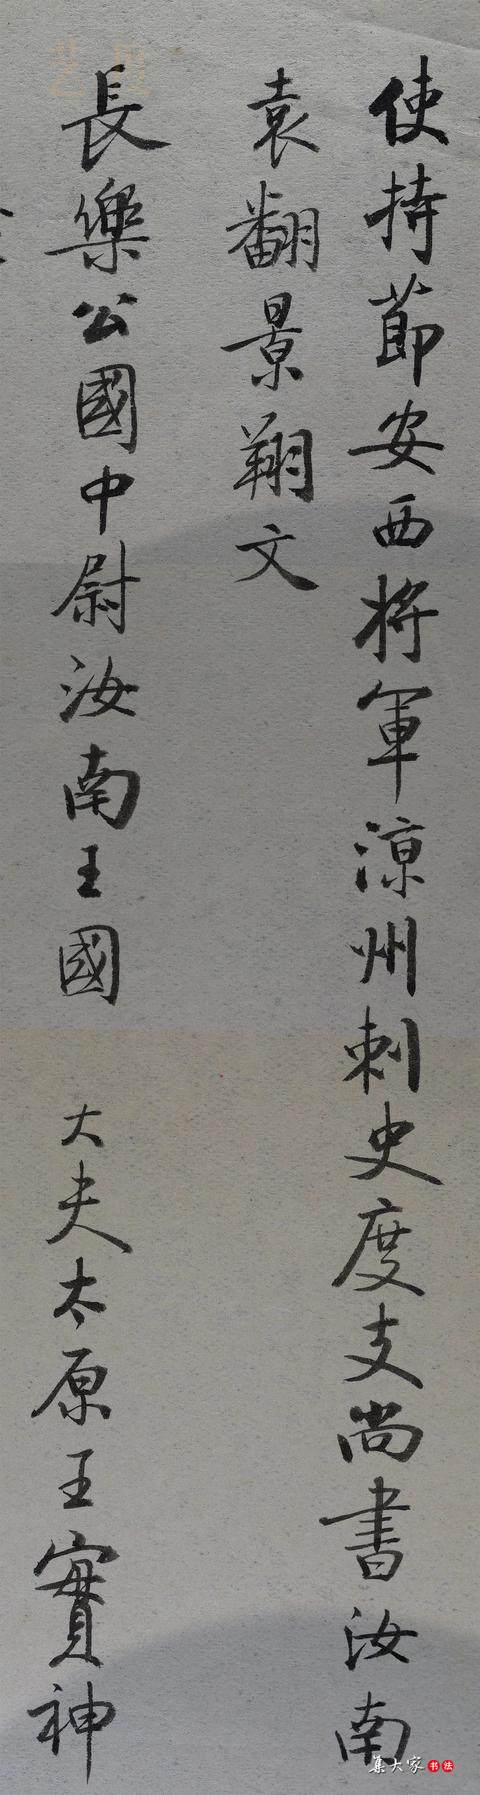 使持節安西將軍涼州刺史度支尚書汝南
袁翻景翔文
長樂公國中尉汝南王國 大夫太原王實神
集大家书法